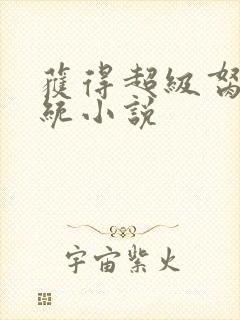 獲得超級
統小說
宇宙紫火